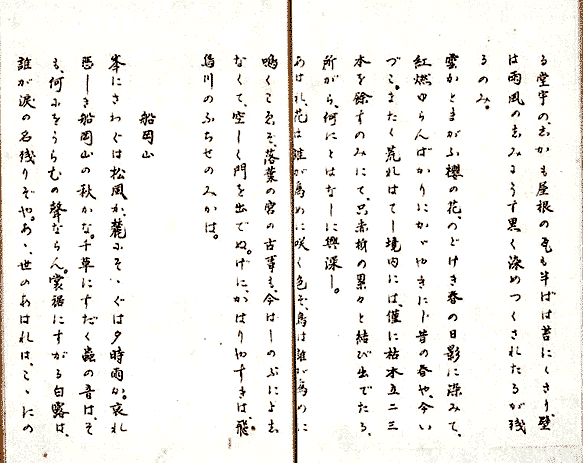 る堂宇の、しかも屋根の瓦も半ばは苔にくさり、壁
は雨風のしみにうす黒く染めつくされたるが残
るのみ。
雲かとまがふ櫻の花、のどけき春の日影に染みて、
紅燃ゆらんばかりにかゞやきにし昔の春や、今い
づこ。またく荒れはてし境内には、僅に枯木立二三
本を餘すのみにて、只赤楡の累々と結び出でたる、
所がら、何にとはなしに興深し。
あはれ、花は誰が為めに咲く色ぞ、鳥は誰が為めに
鳴くこゑぞ、落葉の宮の古事も、今はしのぶによし
なくて、空しく門を出でぬ。げに、かはりやすきは、飛
鳥川のふちせのみかは。
船岡山
峯にさわぐは松風か、麓にそゝぐは夕時雨か。哀れ
悲しき船岡山の秋かな。千草にすだく蟲の音は、そ
も、何をうらむの聲ならん。裳裾にすがる白露は、
誰が涙の名残りぞや。あゝ、世のあはれは、こゝにの